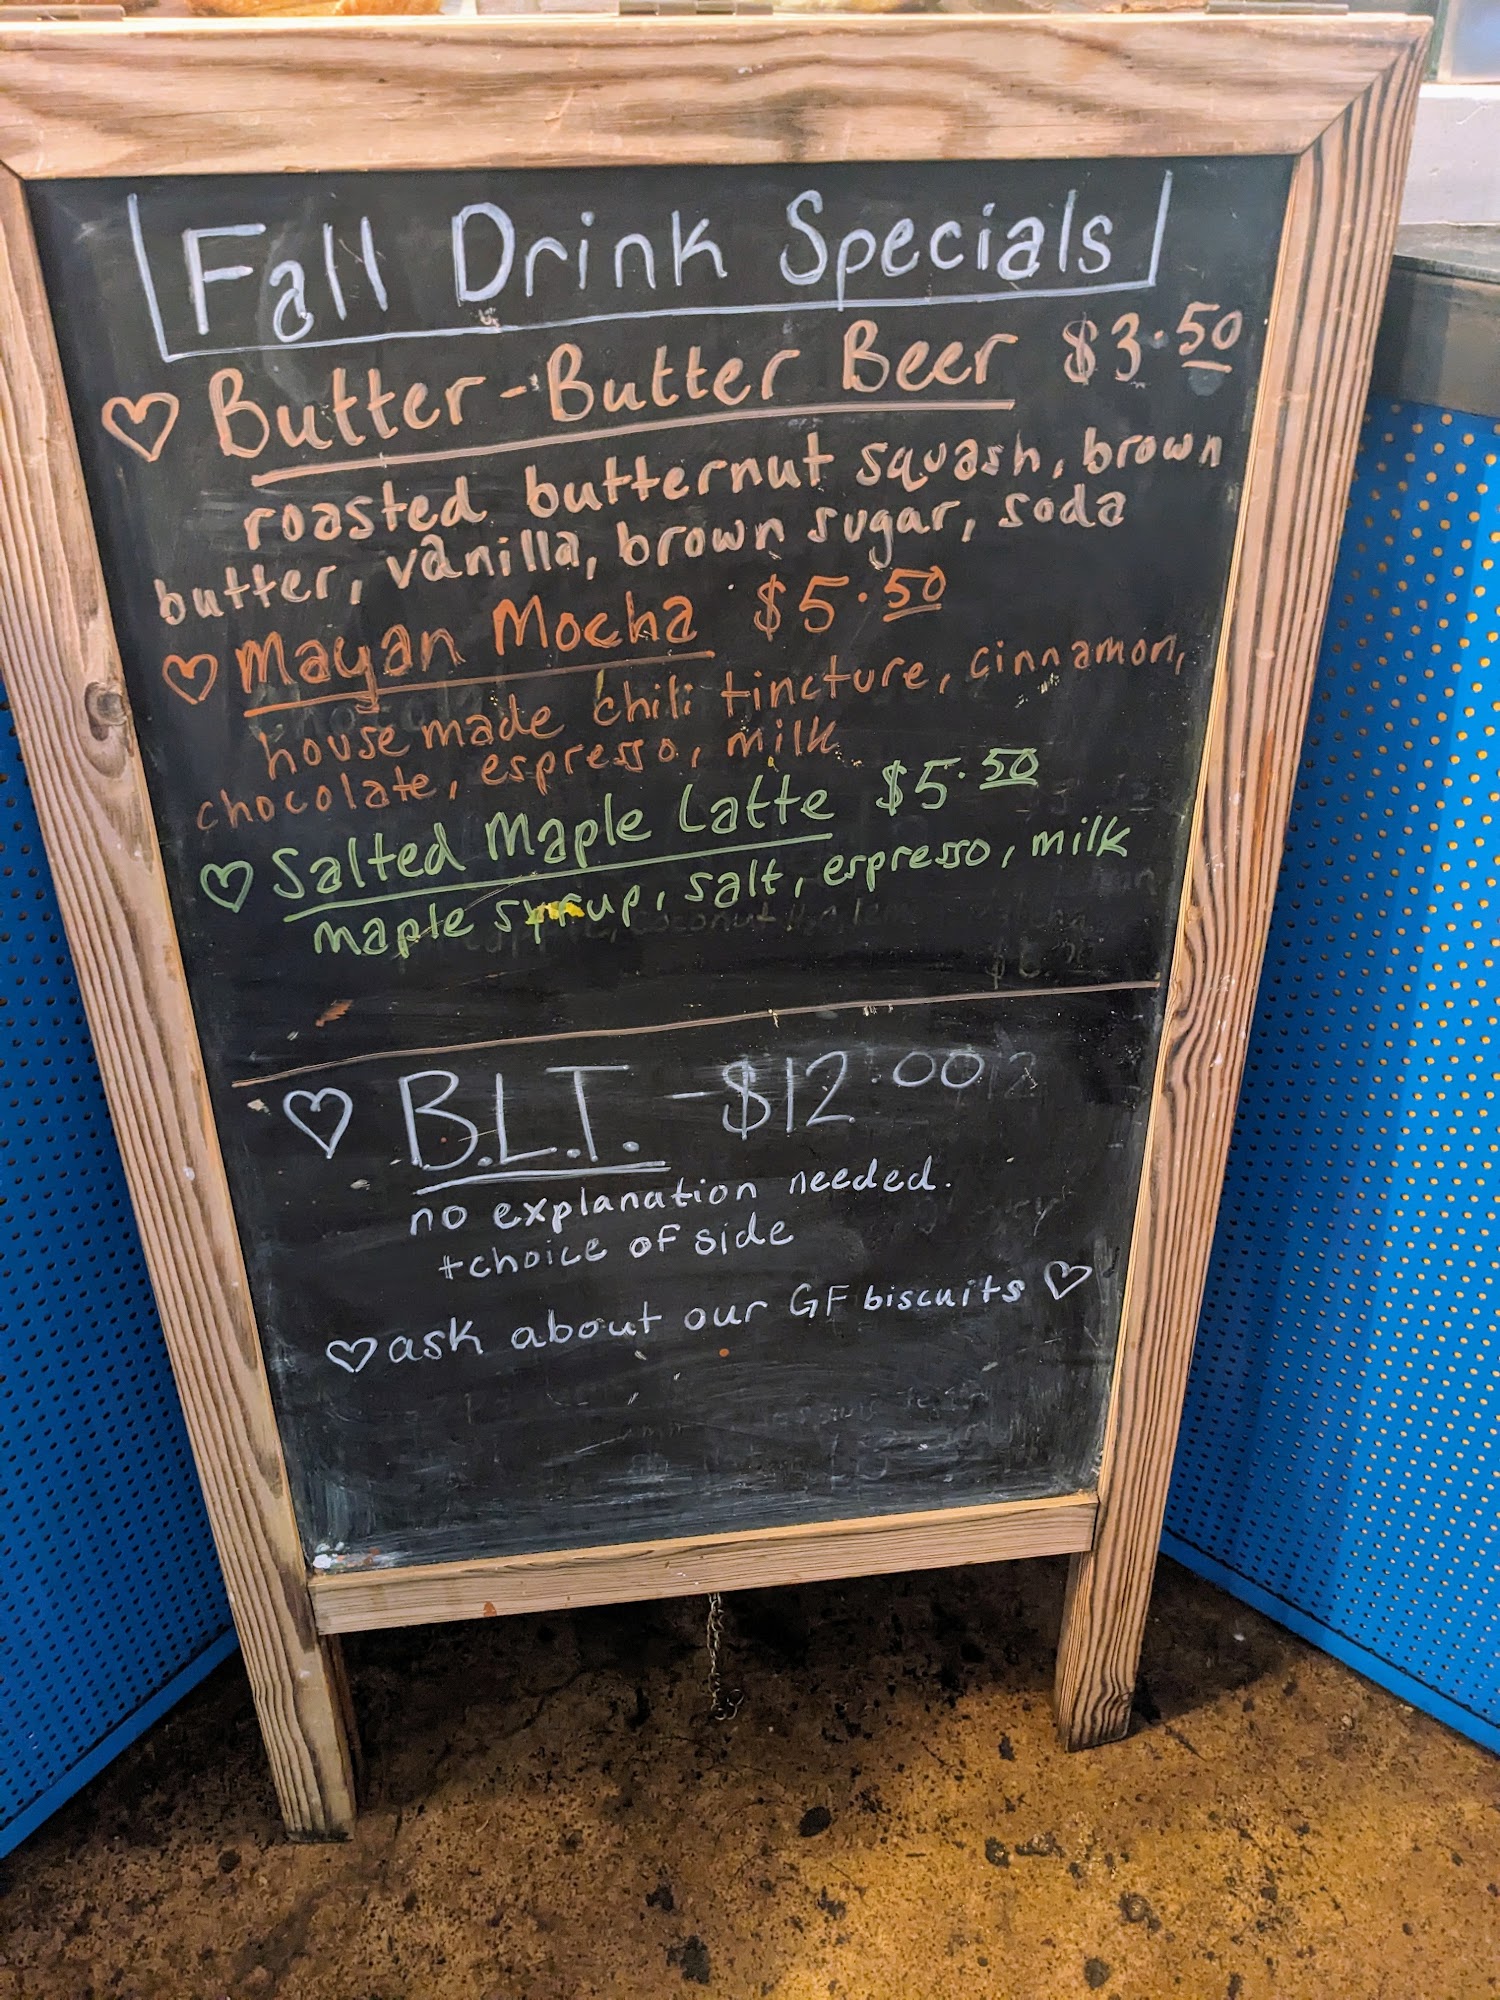 Fall Drink Specials
Butter-Butter Beer $3.50
roasted butternut squash, brown
butter, vanilla, brown sugar, soda
Mayan Mocha $5.50
house made chili tincture, cinnamon,
chocolate, espresso, milk
Salted Maple Latte $5.50
maple syrup, salt, espresso, milk
B.L.T. - $12.00
no explanation needed.
+choice of side
ask about our GF biscuits